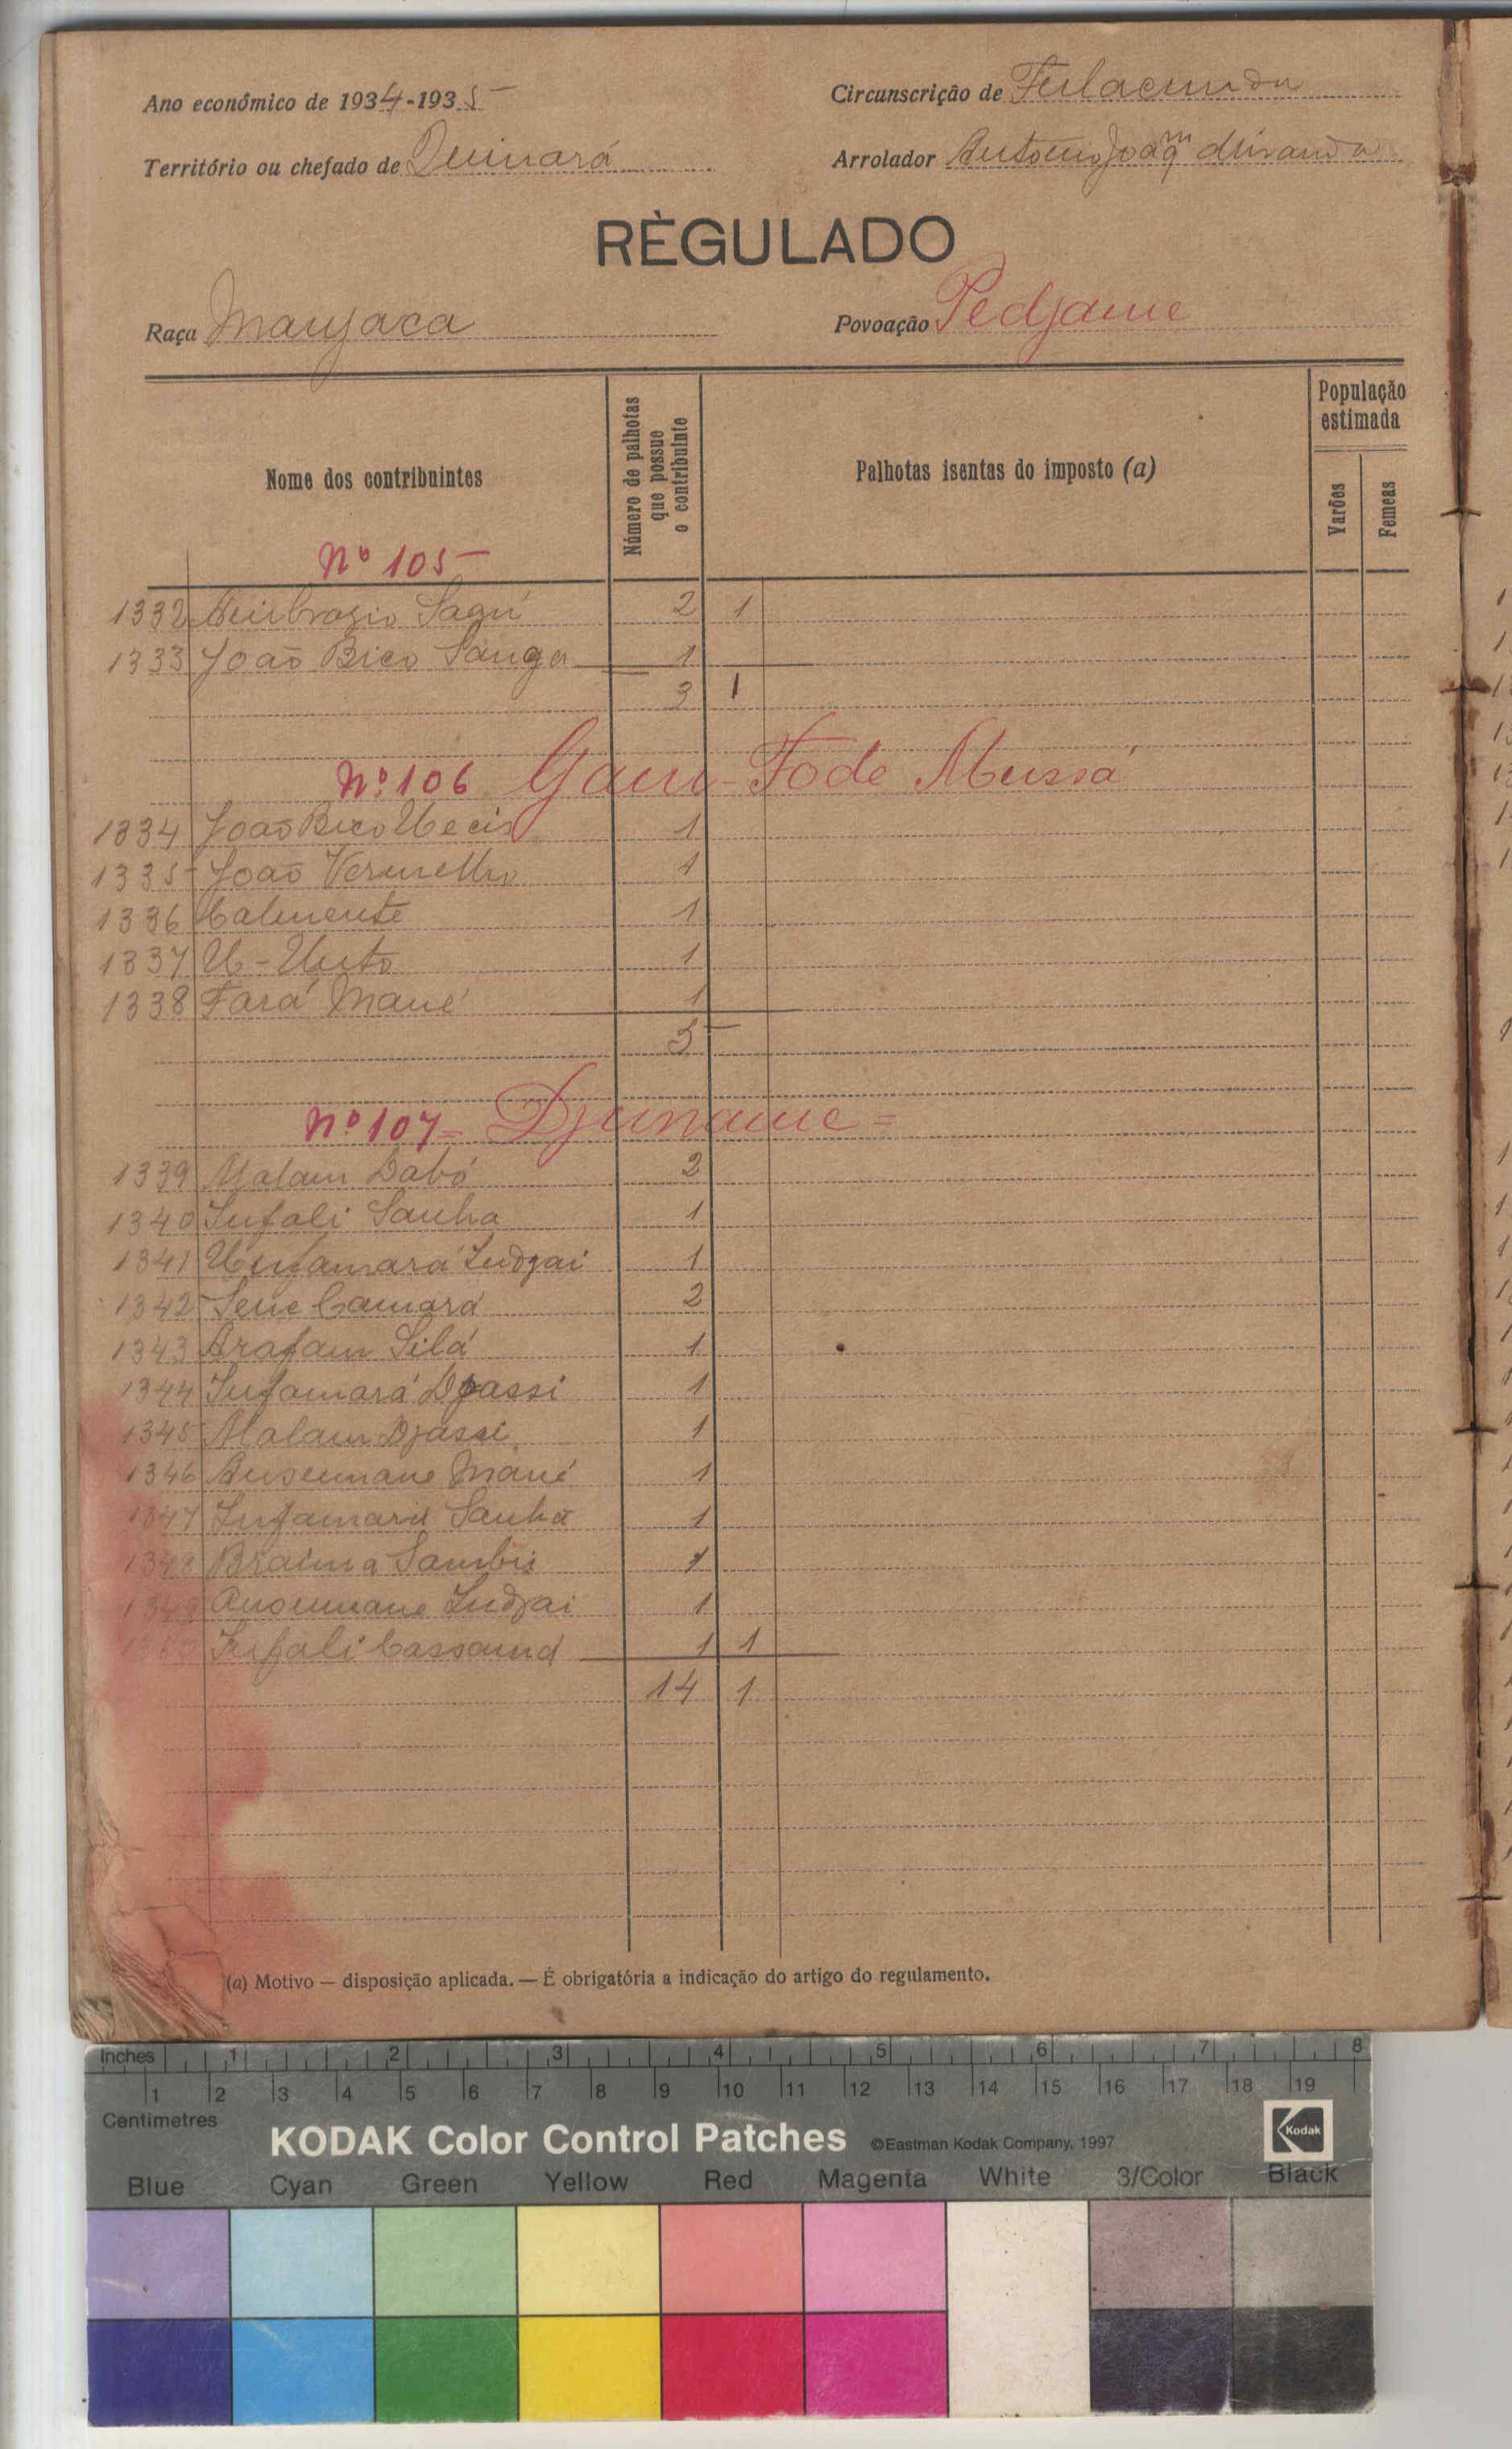 Ano económico de 1934-1935
Circunscrição de Fulacunda
Território ou chefado de Quinará
Arrolador Antonio Joaqm Miranda
RÈGULADO
Raça Manjaca
Povoação Pedjame
Nome dos contribuintes
Número de palhotas que possue o contribuinte
Palhotas isentas do imposto (a)
População estimada
Varões
Femeas
Nº 105
1332 Ambrozio Sagú 2 1
1333 João Bico Sanga 1
3 1
Nº 106 Gam-Fode Mussá
1334 João Bico 1
1335 João Vermelho 1
1336 Calmente 1
1337 1
1338 Fará Mané 1
5
Nº 107 = Djuname =
1339 Malam Dabó 2
1340 Infali Sanha 1
1341 Indjai 1
1342 Sene Camará 2
1343 Arafam Silá 1
1344 Infamará Djassi 1
1345 Malam Djassi 1
1346 Ansumane Mané 1
1347 Infamará Sanha 1
1348 Braima Sambú 1
1349 Ansumane Indjai 1
1350 Infali Cassamá 1 1
14 1
(a) Motivo — disposição aplicada. — É obrigatória a indicação do artigo do regulamento.
Inches 1 2 3 4 5 6 7 8
1 2 3 4 5 6 7 8 9 10 11 12 13 14 15 16 17 18 19
Centimetres
KODAK Color Control Patches ©Eastman Kodak Company, 1997 Kodak
Blue Cyan Green Yellow Red Magenta White 3/Color Black